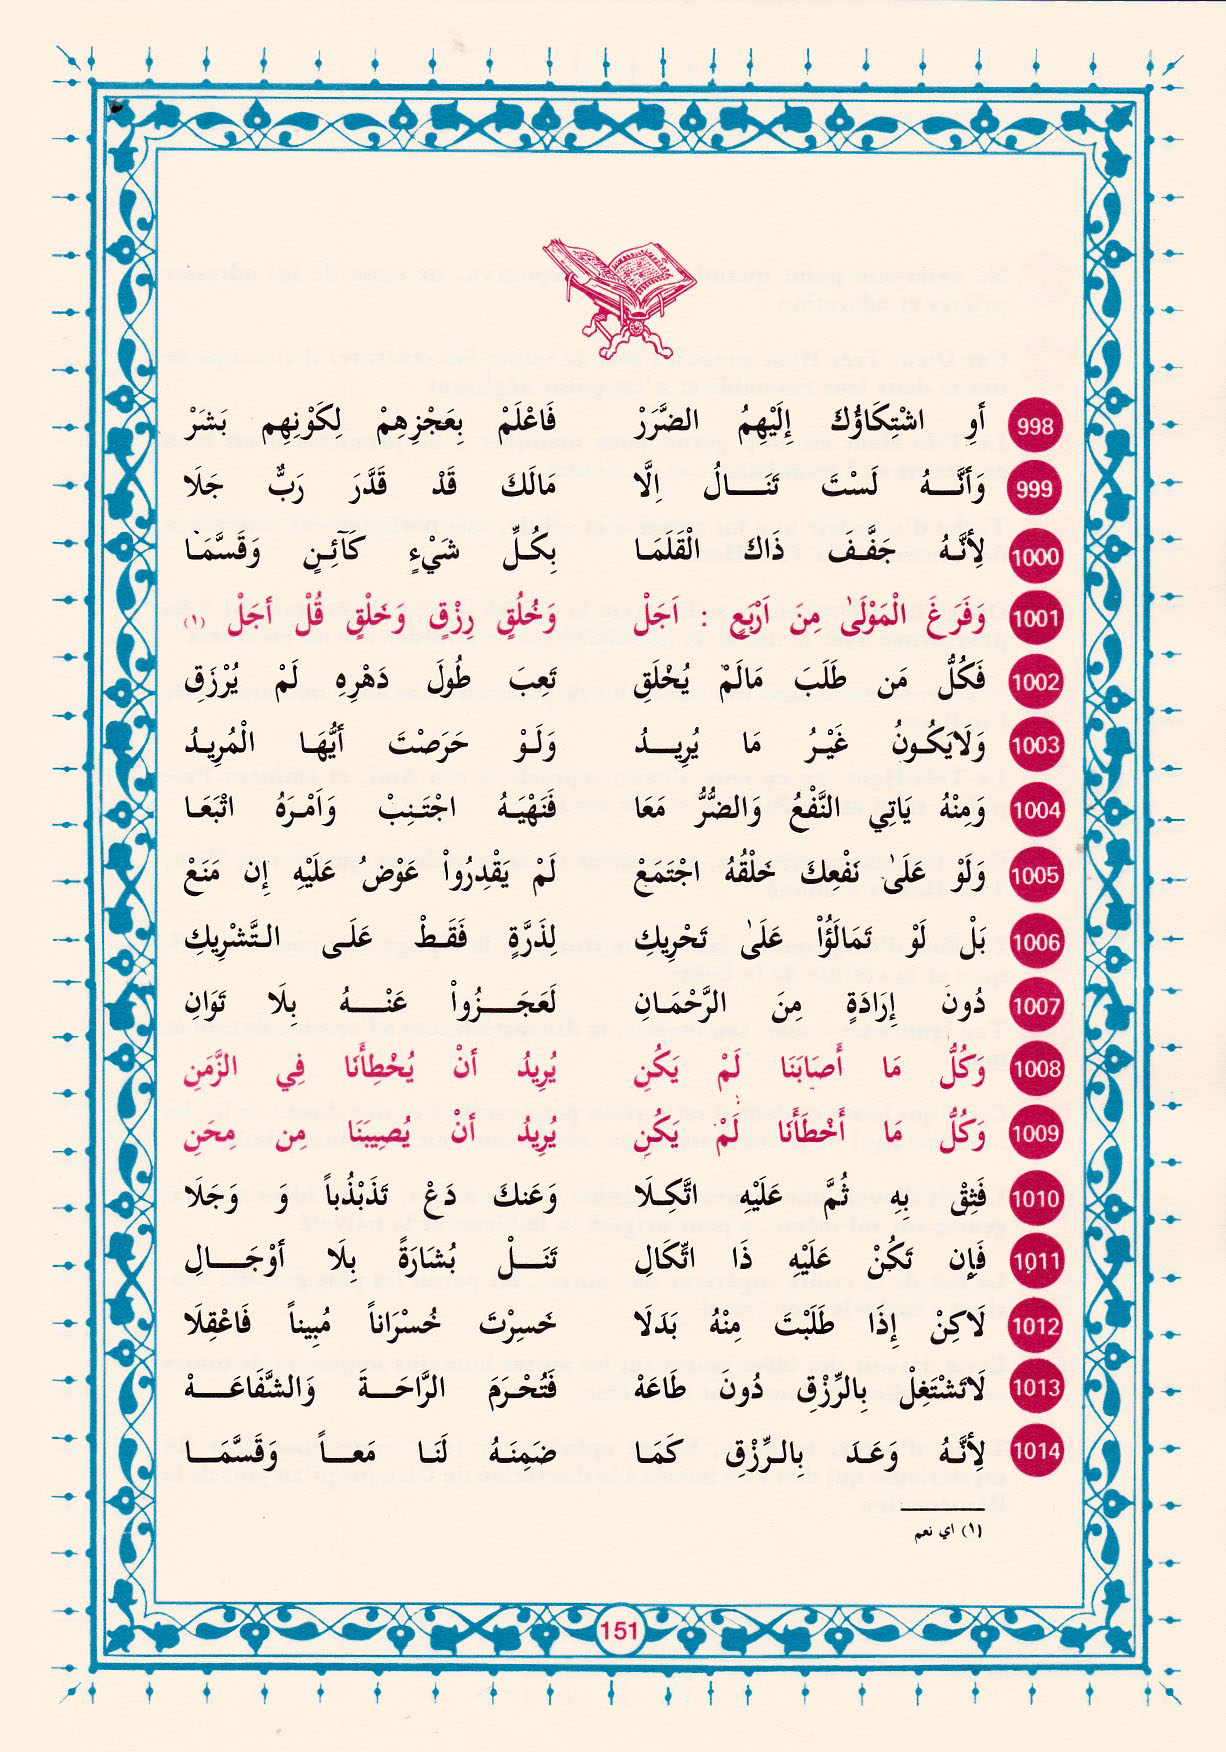 998 أَوِ اشْتكَاؤُكَ إِلَيْهِمُ الضَّرَرْ فَاعْلَمْ بِعَجْزِهِمْ لِكَوْنِهِم بَشَرْ
999 وَأَنَّـهُ لَسْتَ تَنَـالُ اِلَّا مَالَكَ قَدْ قَدَّرَ رَبٌّ جَلَا
1000 لِأَنَّـهُ جَفَّـفَ ذَاكَ الْقَلَمَا بِكُـلِّ شَيْءٍ كَآئِـنٍ وَقَسَّمَـا
1001 وَفَرَغَ الْمَوْلَىٰ مِنَ اَرْبَعٍ : اَجَلْ وَخُلُقٍ رِزْقٍ وَخَلْقٍ قُلْ أَجَلْ (١)
1002 فَكُلُّ مَن طَلَبَ مَالَمْ يُخْلَقِ تَعِبَ طُولَ دَهْرِهِ لَمْ يُرْزَقِ
1003 وَلَايَكُـونُ غَيْـرُ مَا يُرِيـدُ وَلَـوْ حَرَصْتَ أَيُّهَـا الْمُرِيـدُ
1004 وَمِنْهُ يَاتِي النَّفْعُ وَالضُّرُّ مَعَا فَنَهْيَـهُ اجْتَـنِبْ وَاَمْـرَهُ اتْبَعَـا
1005 وَلَوْ عَلَىٰ نَفْعِكَ خَلْقُهُ اجْتَمَعْ لَمْ يَقْدِرُواْ عَوْضُ عَلَيْهِ إِن مَنَعْ
1006 بَلْ لَوْ تَمَالَؤُاْ عَلَىٰ تَحْرِيكِ لِذَرَّةٍ فَقَـطْ عَلَـى التَّشْرِيكِ
1007 دُونَ إِرَادَةٍ مِنَ الرَّحْمَـانِ لَعَجَـزُواْ عَنْـهُ بِلَا تَوَانِ
1008 وَكُلُّ مَا أَصَابَنَا لَمْ يَكُنِ يُرِيدُ أَنْ يُخْطِأَنَا فِي الزَّمَنِ
1009 وَكُلُّ مَا أَخْطَأَنَا لَمْ يَكُنِ يُرِيدُ أَنْ يُصِيبَنَا مِن مِحَنِ
1010 فَثِقْ بِهِ ثُمَّ عَلَيْهِ اتَّكِـلَا وَعَنكَ دَعْ تَذَبْذُباً وَ وَجَلَا
1011 فَإِن تَكُنْ عَلَيْهِ ذَا اتِّكَالِ تَنَـلْ بُشَارَةً بِلَا أَوْجَـالِ
1012 لَاكِنْ إِذَا طَلَبْتَ مِنْهُ بَدَلَا خَسِرْتَ خُسْرَاناً مُبِيناً فَاعْقِلَا
1013 لَاتَشْتَغِلْ بِالرِّزْقِ دُونَ طَاعَهْ فَتُحْـرَمَ الرَّاحَـةَ وَالشَّفَاعَـهْ
1014 لِأَنَّـهُ وَعَـدَ بِالـرِّزْقِ كَمَـا ضَمِنَهُ لَنَـا مَعـاً وَقَسَّمَـا
(١) اي نعم
151